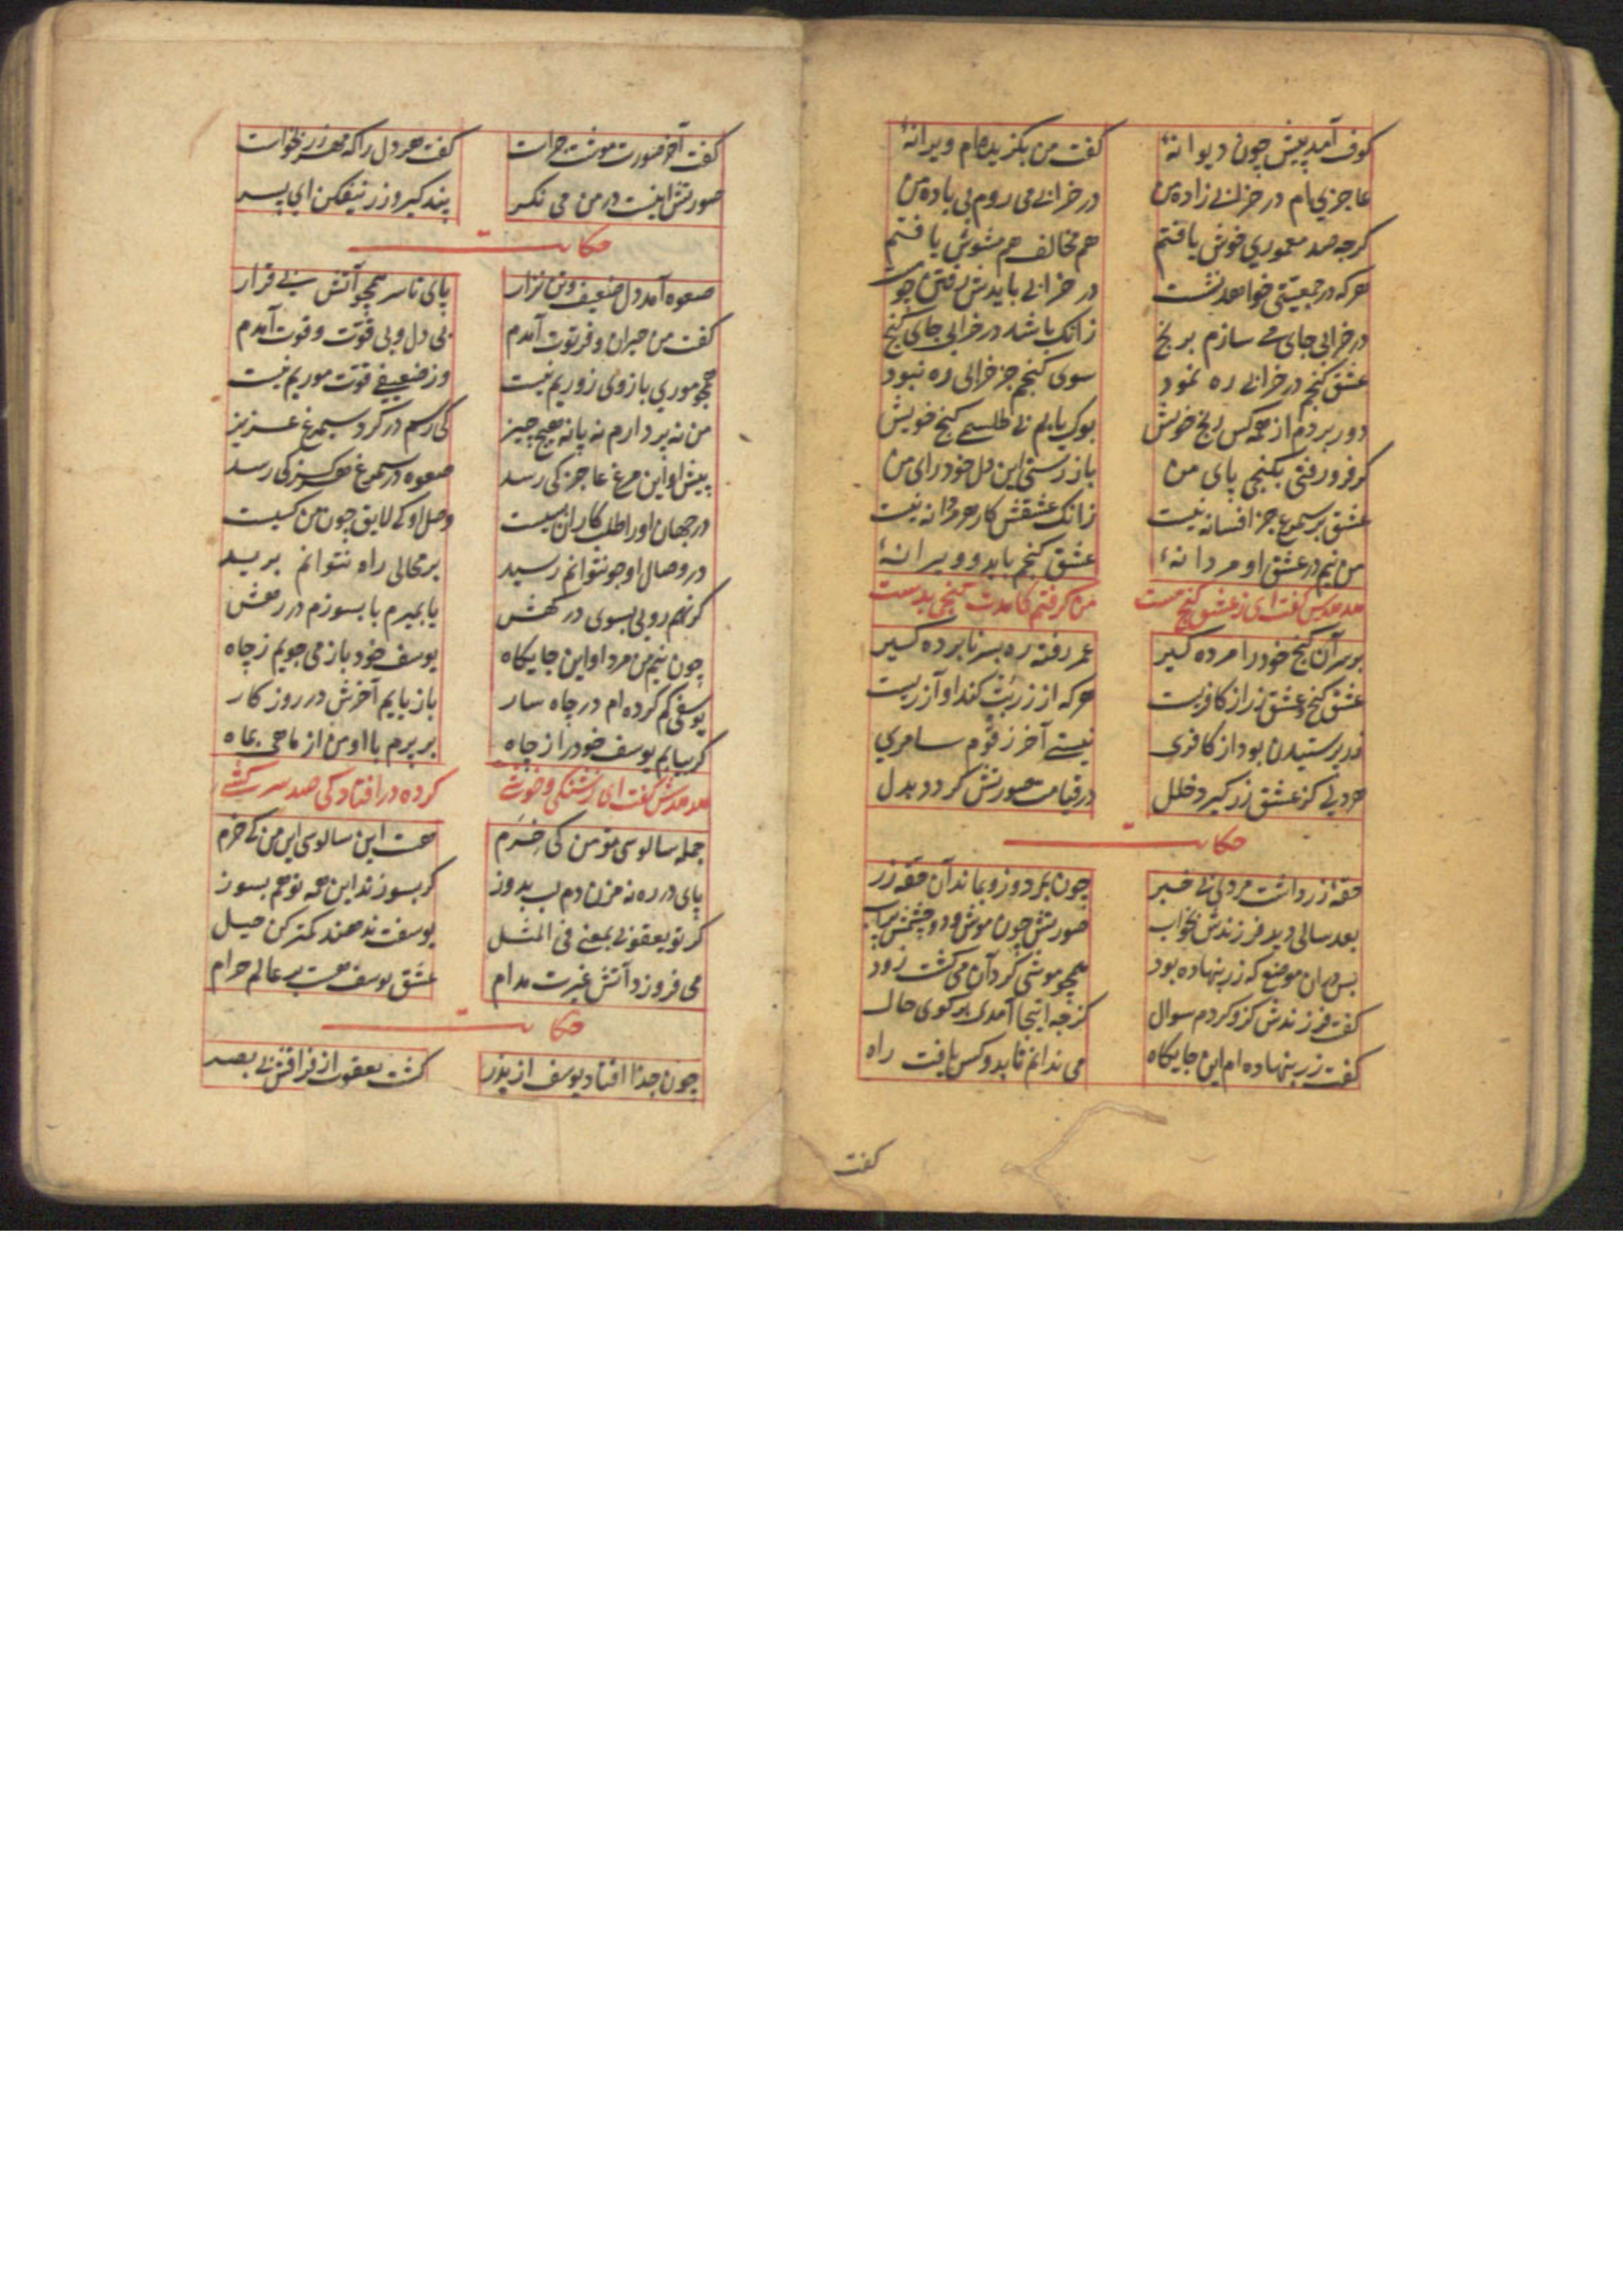 کوف آمد پیش چون دیوانهٔ کفت من بکزیده‌ام ویرانهٔ
عاجزی‌ام در خرابی زاده من در خرابی می روم بی باده من
کرچه صد معموری خوش یافتم هم مخالف هم مشوش یافتم
هرکه در جمعیتی خواهد نشست در خرابی بایدش رفتن چو مست
در خرابی جای می سازم برنج زانک باشد در خرابی جای کنج
عشق کنجم در خرابی ره نمود سوی کنجم جز خرابی ره نبود
دور بردم از همه کس رنج خویش بوک یابم بی طلسمی کنج خویش
کر فرو رفتی بکنجی پای من باز رستی این دل خود رای من
عشق بر سیمرغ جز افسانه نیست زانک عشقش کار هر مردانه نیست
من نیم در عشق او مردانهٔ عشق کنجم باید و ویرانهٔ
هدهدش کفت ای ز عشق کنج مست من کرفتم کامدت کنجی بدست
بر سر آن کنج خود را مرده کیر عمر رفته ره بسر نابرده کیر
عشق کنج و عشق زر از کافریست هرکه از زر بت کند او آزریست
زر پرستیدن بود از کافری نیستی آخر ز قوم سامری
هر دلی کز عشق زر کیرد خلل در قیامت صورتش کردد بدل
حکایت
حقهٔ زر داشت مردی بی خبر چون بمرد و زو بماند آن حقه زر
بعد سالی دید فرزندش بخواب صورتش چون موش و دو چشمش پرآب
بس دران موضع که زر بنهاده بود همچو موشی کرد آن می کشت زود
کفت فرزندش کزو کردم سوال کز چه اینجا آمدی بر کوی حال
کفت زر بنهاده ام این جایکاه می ندانم تا بدو کس یافت راه
کفت
کفت آخر صورت موشت چراست کفت هر دل را که مهر زر نخواست
صورتش اینست در من می نکر پند کیر و زر بیفکن ای پسر
حکایت
صعوه آمد دل ضعیف و تن نزار پای تا سر همچو آتش بی قرار
کفت من حیران و فرتوت آمدم بی دل و بی قوت و قوت آمدم
همچو موری بازوی زوریم نیست وز ضعیفی قوت موریم نیست
من نه پر دارم نه پا نه هیچ چیز کی رسم در کرد سیمرغ عزیز
پیش او این مرغ عاجز کی رسد صعوه در سیمرغ هرکز کی رسد
در جهان او را طلب کاران بسیست وصل او کی لایق چون من کسیست
در وصال او چو نتوانم رسید بر محالی راه نتوانم برید
کر نهم رویی بسوی درکهش یا بمیرم یا بسوزم در رهش
چون نیم من مرد او این جایکاه یوسف خود باز می جویم ز چاه
یوسفی کم کرده ام در چاه سار باز یابم آخرش در روز کار
کر بیابم یوسف خود را ز چاه بر پرم با او من از ماهی بماه
هدهدش کفت ای ز شنکی و خوشی کرده در افتادکی صد سرکشی
جمله سالوسی تو من کی خرم هست این سالوسی این من کی خرم
پای در ره نه مزن دم لب بدوز کر بسوزند این همه تو هم بسوز
کر تو یعقوبی بمعنی فی المثل یوسفت ندهند کمتر کن حیل
می فروزد آتش غیرت مدام عشق یوسف هست بر عالم حرام
حکایت
چون جدا افتاد یوسف از پدر کشت یعقوب از فراقش بی بصر